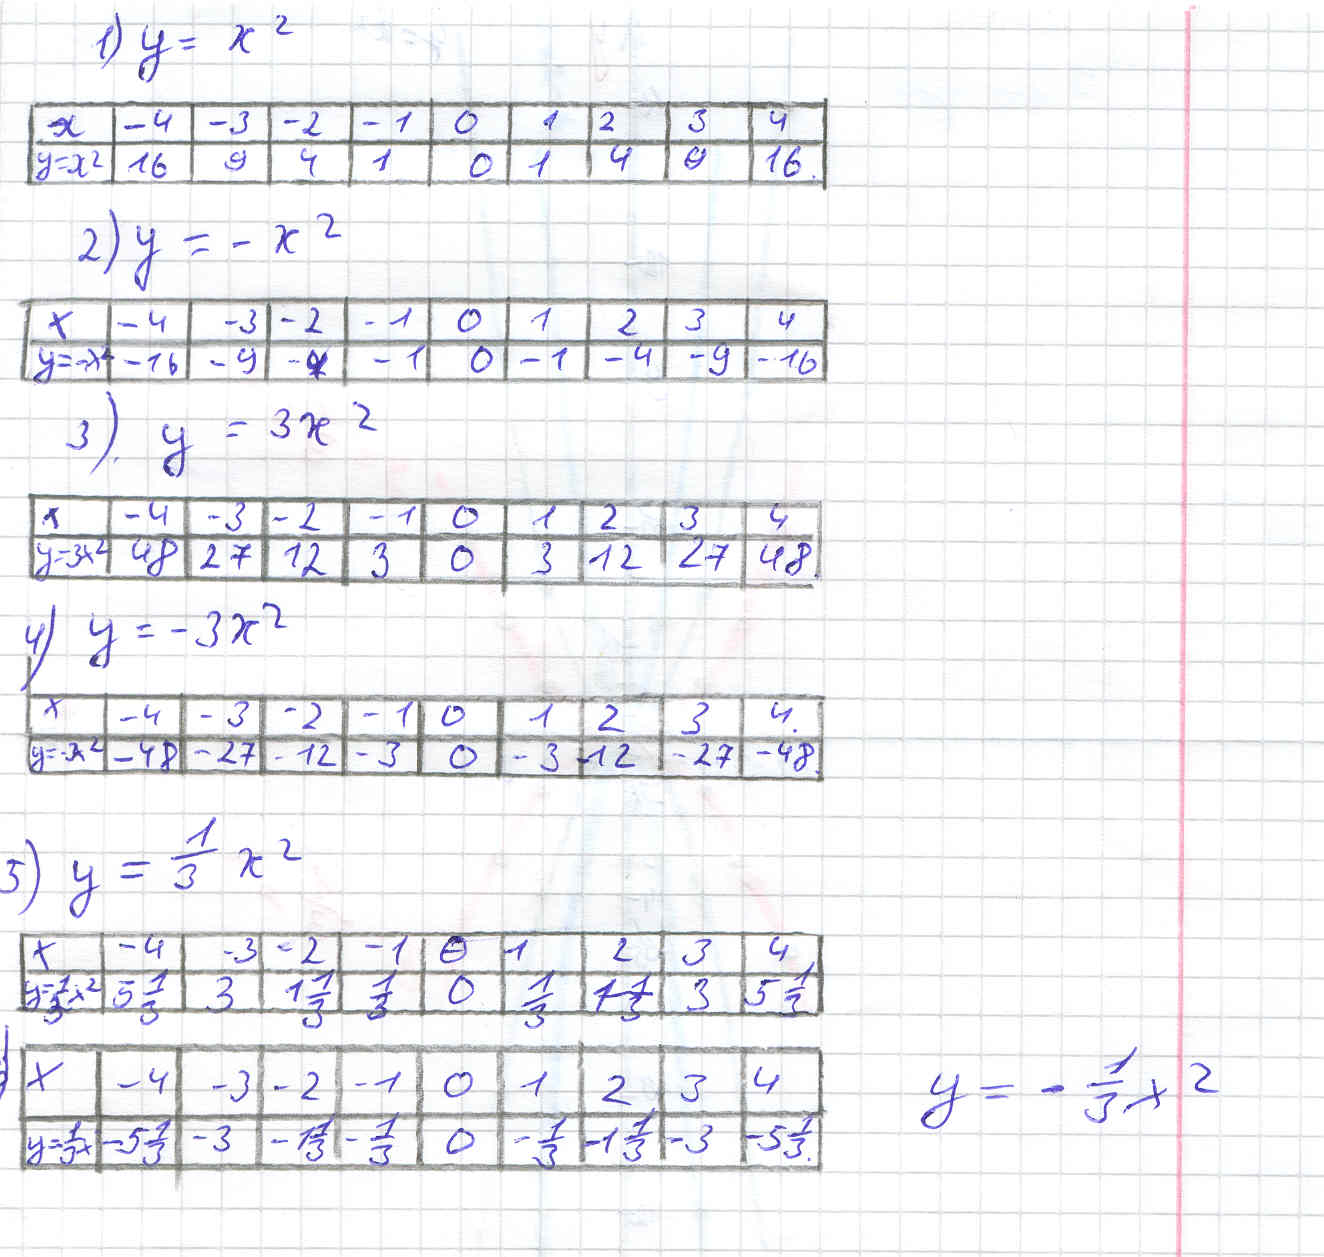 1) y = x²
x -4 -3 -2 -1 0 1 2 3 4
y=x² 16 9 4 1 0 1 4 9 16.
2) y = - x²
x -4 -3 -2 -1 0 1 2 3 4
y=-x² -16 -9 -4 -1 0 -1 -4 -9 -16
3). y = 3x²
x -4 -3 -2 -1 0 1 2 3 4
y=3x² 48 27 12 3 0 3 12 27 48.
4) y = -3x²
x -4 -3 -2 -1 0 1 2 3 4.
y=-3x² -48 -27 -12 -3 0 -3 -12 -27 -48.
5) y = 1/3 x²
x -4 -3 -2 -1 0 1 2 3 4
y=1/3x² 5 1/3 3 1 1/3 1/3 0 1/3 1 1/3 3 5 1/3
x -4 -3 -2 -1 0 1 2 3 4
y=1/3x -5 1/3 -3 -1 1/3 -1/3 0 -1/3 -1 1/3 -3 -5 1/3.
y = - 1/3 x²